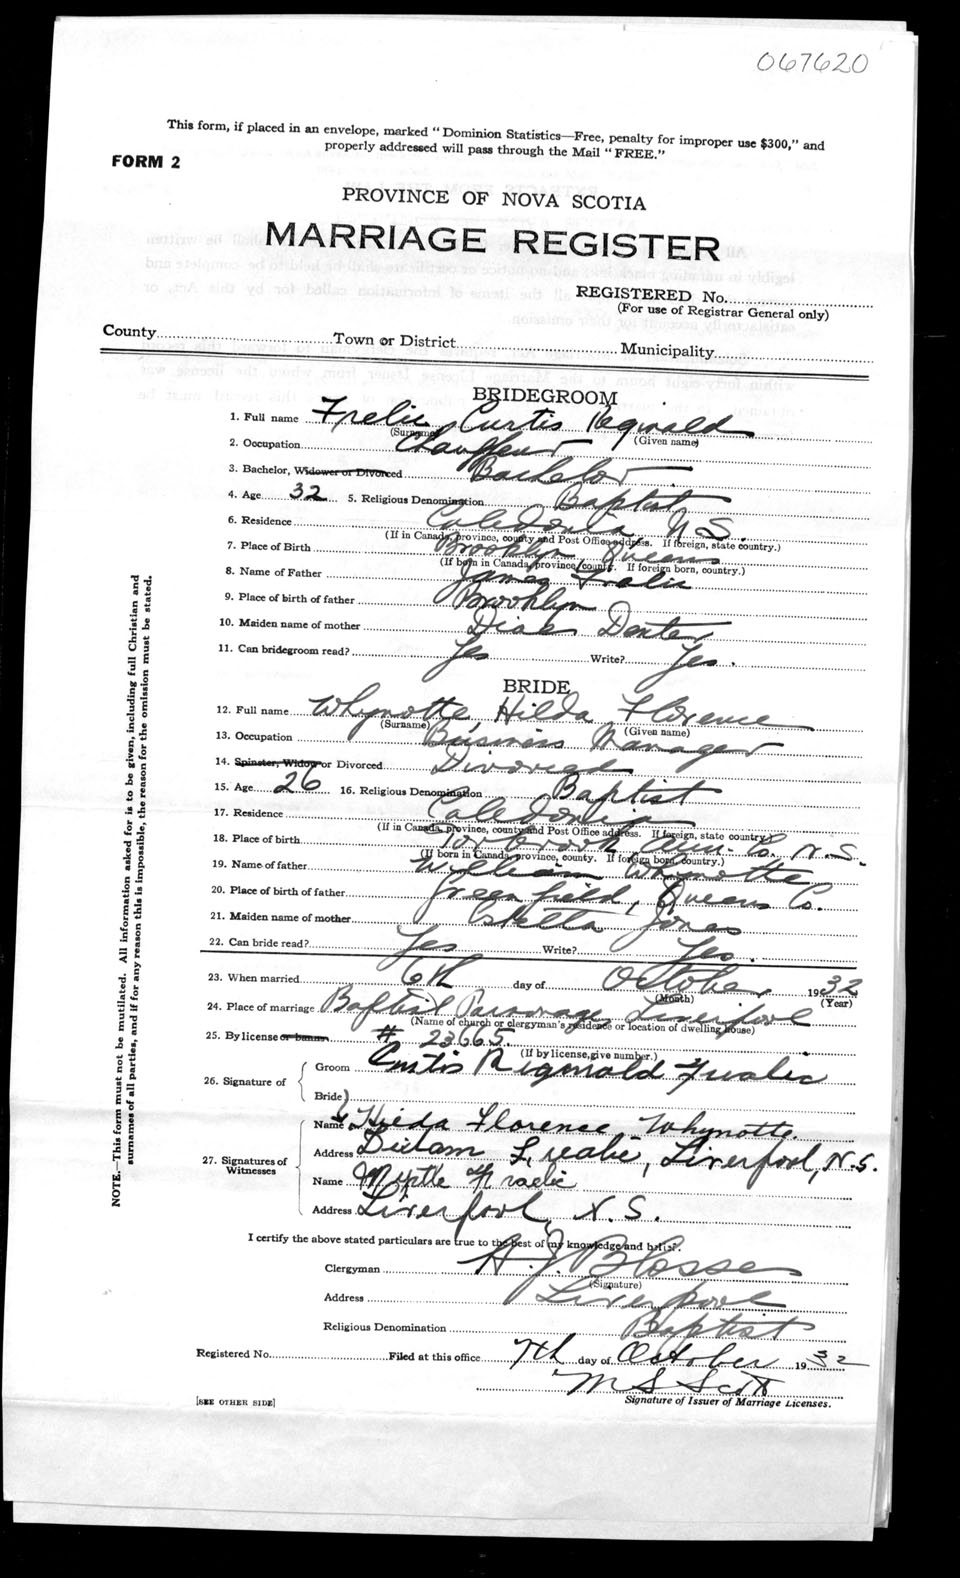 067620
This form, if placed in an envelope, marked "Dominion Statistics—Free, penalty for improper use $300," and
properly addressed will pass through the Mail "FREE."
FORM 2
PROVINCE OF NOVA SCOTIA
MARRIAGE REGISTER
REGISTERED No.
(For use of Registrar General only)
County Town or District Municipality
BRIDEGROOM
1. Full name Frelic, Curtis Reginald
(Surname) (Given name)
2. Occupation Chauffeur
3. Bachelor, Widower or Divorced Bachelor
4. Age 32 5. Religious Denomination Baptist
6. Residence Caledonia, N.S.
(If in Canada, province, county and Post Office address. If foreign, state country.)
7. Place of Birth Brooklyn Queens
(If born in Canada, province, county. If foreign born, country.)
8. Name of Father James Frelic
9. Place of birth of father Brooklyn
10. Maiden name of mother Dexter
11. Can bridegroom read? Yes Write? Yes.
BRIDE
12. Full name Whynotte, Hilda Florence
(Surname) (Given name)
13. Occupation Business Manager
14. Spinster, Widow or Divorced Divorced
15. Age 26 16. Religious Denomination Baptist
17. Residence Caledonia
(If in Canada, province, county and Post Office address. If foreign, state country.)
18. Place of birth Torbrook Ann. Co. N.S.
(If born in Canada, province, county. If foreign born, country.)
19. Name of father William Whynotte
20. Place of birth of father Greenfield, Queens Co.
21. Maiden name of mother Estella Jones
22. Can bride read? Yes Write? Yes.
23. When married 6th day of October 1932
(Month) (Year)
24. Place of marriage Baptist Parsonage, Liverpool
(Name of church or clergyman's residence or location of dwelling house)
25. By license or banns # 23665.
(If by license, give number.)
26. Signature of
Groom Curtis Riginald Frelic
Bride
27. Signatures of Witnesses
Name Hilda Florence Whynotte.
Address Liverpool, N.S.
Name Myrtle Fraelic
Address Liverpool, N.S.
I certify the above stated particulars are true to the best of my knowledge and belief.
Clergyman H. J. Blosse
(Signature)
Address Liverpool
Religious Denomination Baptist
Registered No. Filed at this office 7th day of October 1932
M S Scott
[SEE OTHER SIDE] Signature of Issuer of Marriage Licenses.
NOTE.—This form must not be mutilated. All information asked for is to be given, including full Christian and
surnames of all parties, and if for any reason this is impossible, the reason for the omission must be stated.